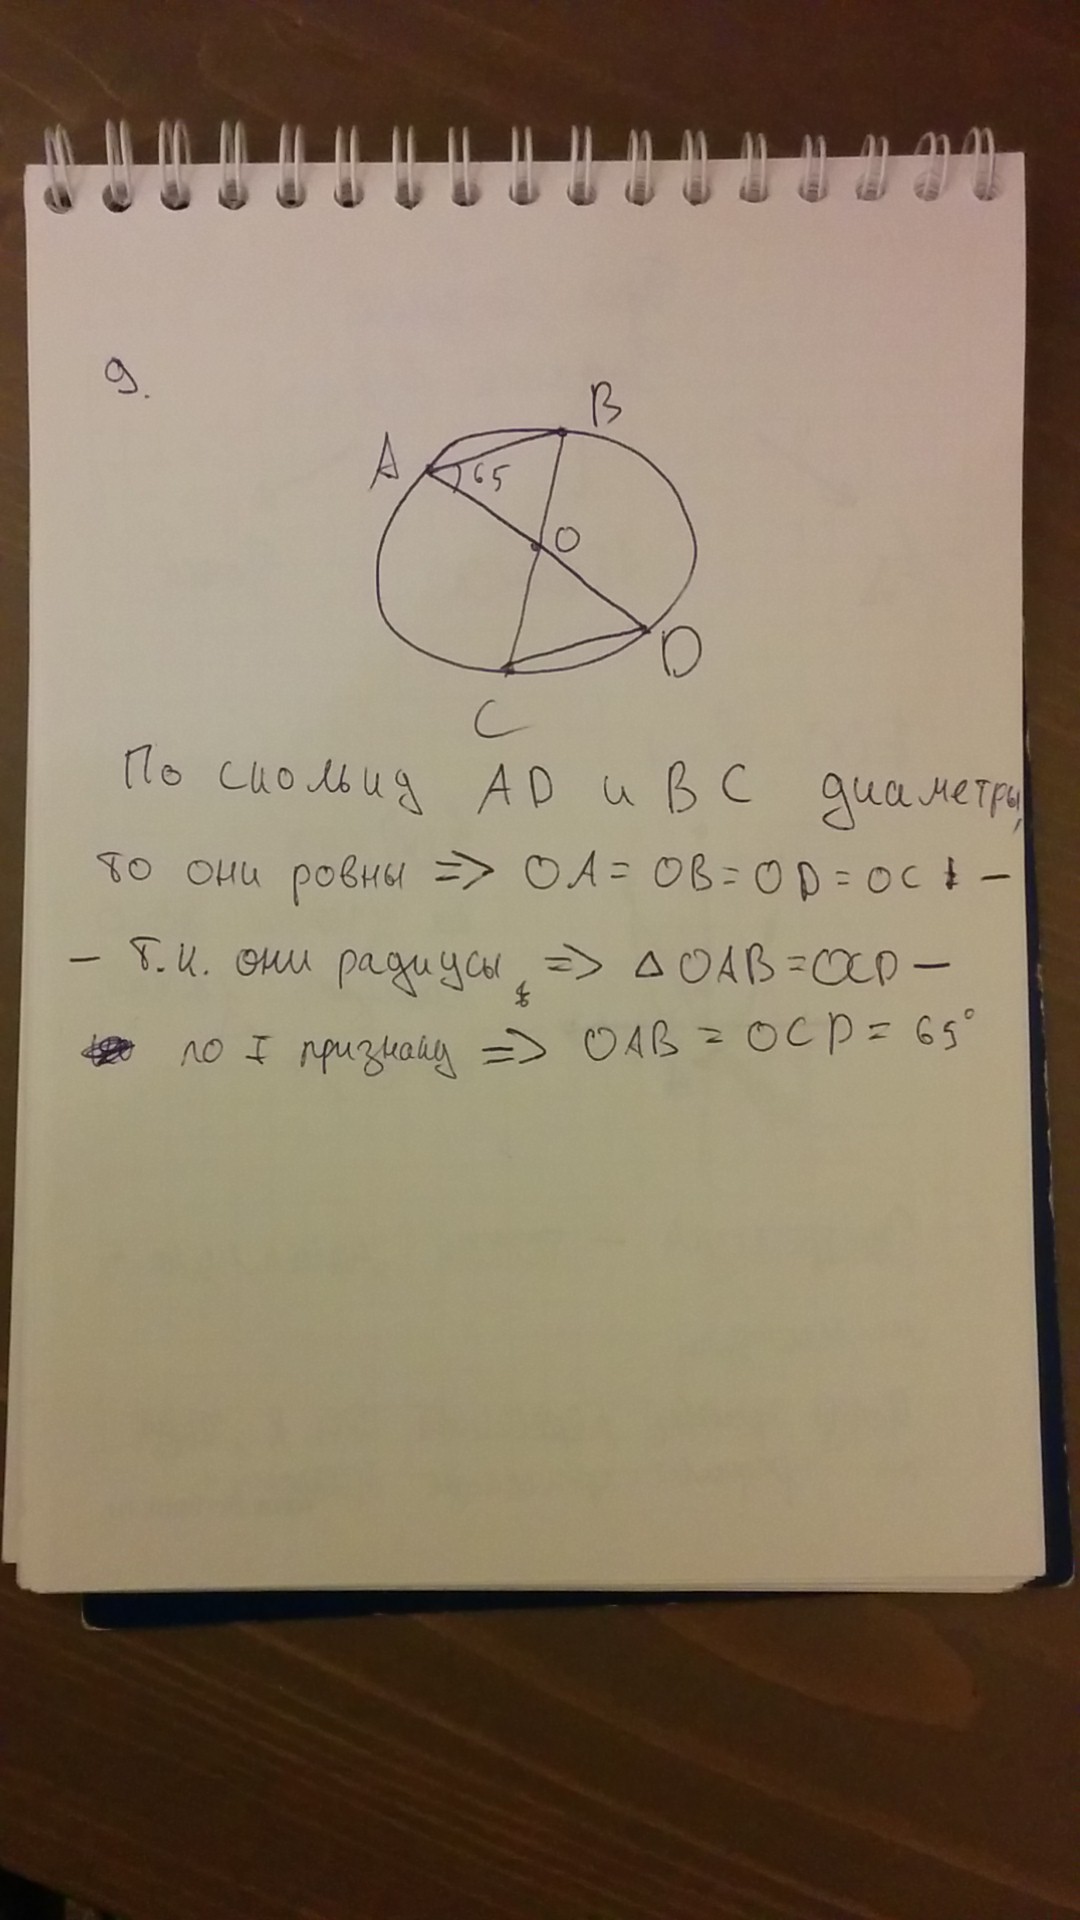 9.
B
A
65
O
D
C
По скольку AD и BC диаметры,
то они ровны => OA = OB = OD = OC –
– т.к. они радиусы => △OAB = OCD –
по I признаку => OAB = OCD = 65°